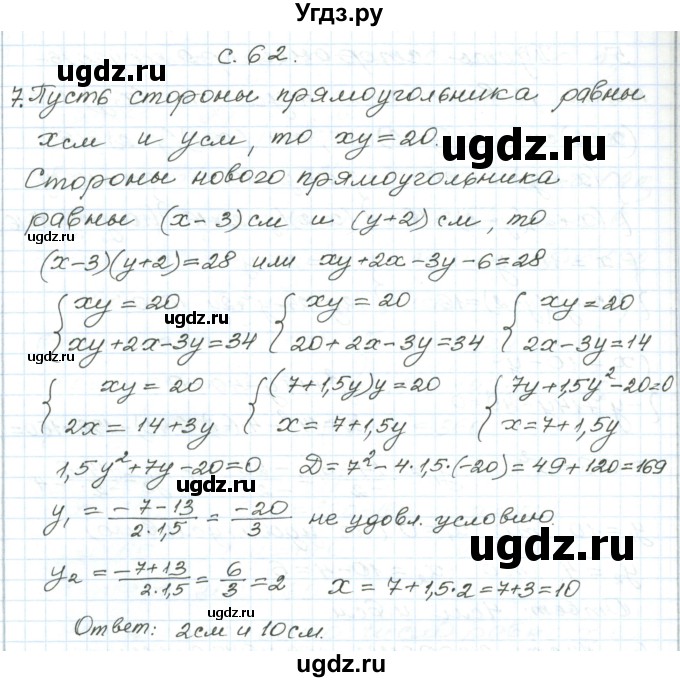 Угдз.ру
с. 62.
7. Пусть стороны прямоугольника равны
xсм и yсм, то xy=20.
ugdz.ru
Стороны нового прямоугольника
равны (x-3)см и (y+2) см, то
ugdz.ru
(x-3)(y+2)=28 или xy+2x-3y-6=28
{xy=20 {xy=20 {xy=20
ugdz.ru
xy+2x-3y=34 20+2x-3y=34 2x-3y=14
ugdz.ru
{xy=20 {(7+1,5y)y=20 {7y+1,5y²-20=0
2x=14+3y x=7+1,5y x=7+1,5y
1,5y²+7y-20=0 D=7²-4·1,5·(-20)=49+120=169
ugdz.ru
y₁ = (-7-13)/(2·1,5) = -20/3 не удовл. условию.
ugdz.ru
y₂ = (-7+13)/(2·1,5) = 6/3 = 2 x=7+1,5·2=7+3=10
ugdz.ru
Ответ: 2см и 10см.
ugdz.ru
ugdz.ru